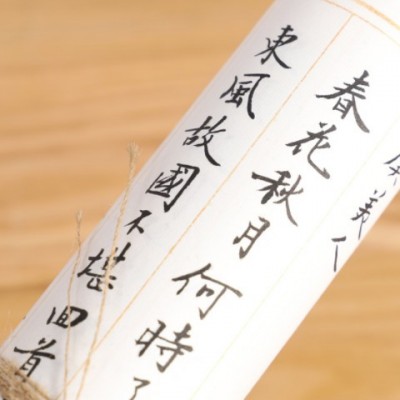 美人
春花秋月何時了
東風故國不堪回首